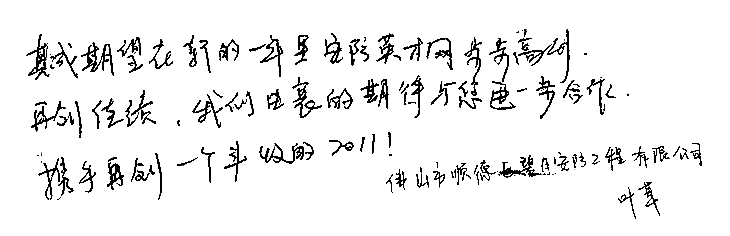 真诚期望在新的一年里安防英才网步步高升.
再创佳绩,我们由衷的期待与您进一步合作.
携手再创一个丰收的2011!
佛山市顺德 碧月安防工程有限公司
叶